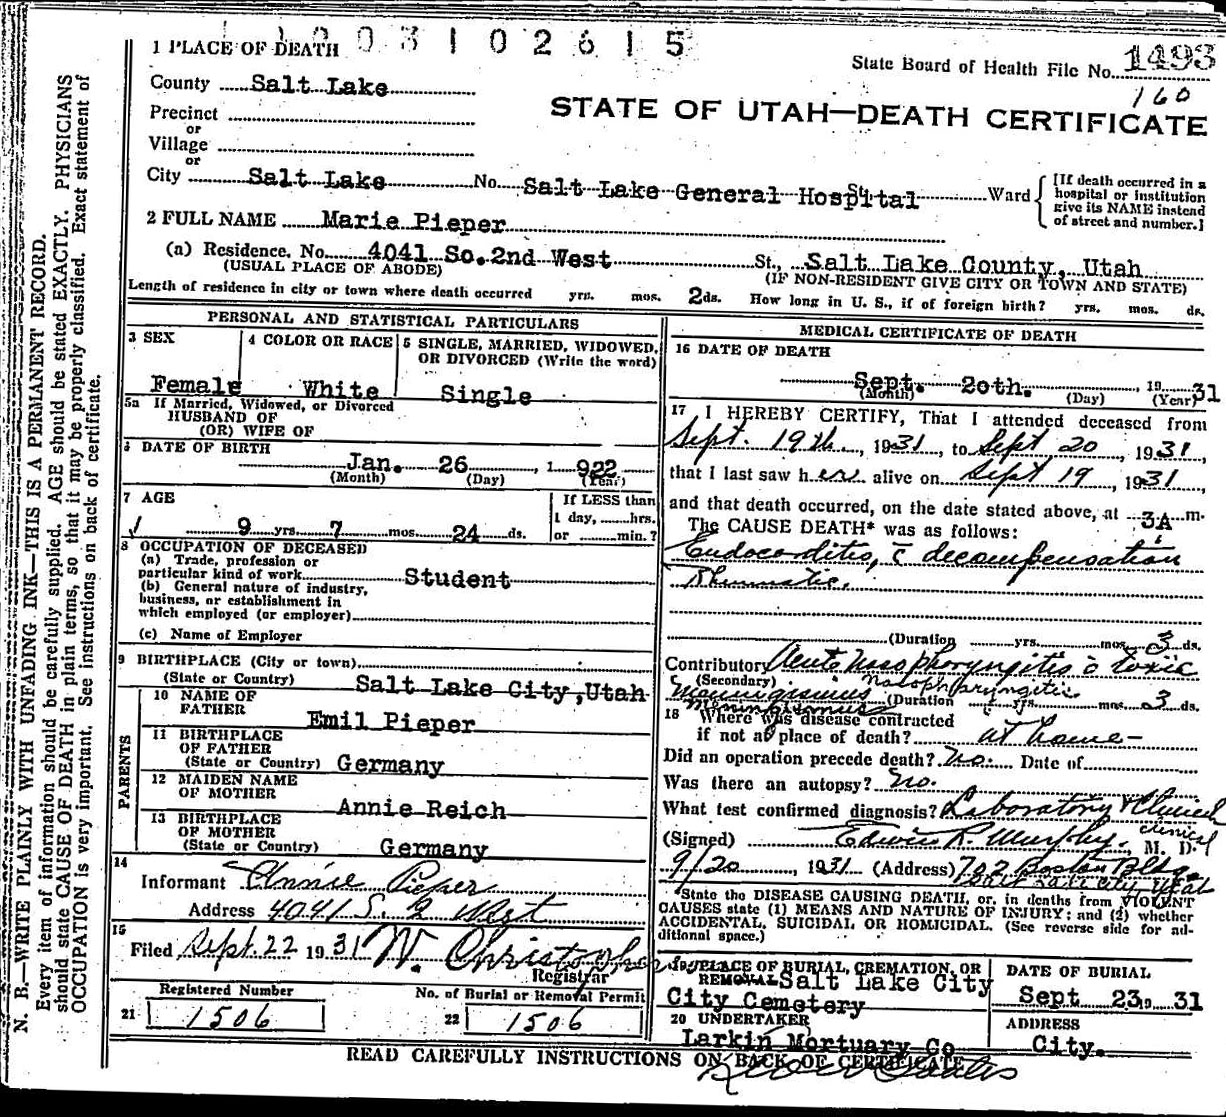 1003102615
1 PLACE OF DEATH
State Board of Health File No. 1493
160
County Salt Lake
STATE OF UTAH—DEATH CERTIFICATE
Precinct
or
Village
or
City Salt Lake No. Salt Lake General Hospital St. Ward
[If death occurred in a
hospital or institution
give its NAME instead
of street and number.]
2 FULL NAME Marie Pieper
(a) Residence. No. 4041 So. 2nd West St., Salt Lake County, Utah
(USUAL PLACE OF ABODE) (IF NON-RESIDENT GIVE CITY OR TOWN AND STATE)
Length of residence in city or town where death occurred yrs. mos. 2 ds. How long in U. S., if of foreign birth? yrs. mos. ds.
N. B.—WRITE PLAINLY WITH UNFADING INK—THIS IS A PERMANENT RECORD.
Every item of information should be carefully supplied. AGE should be stated EXACTLY. PHYSICIANS
should state CAUSE OF DEATH in plain terms, so that it may be properly classified. Exact statement of
OCCUPATION is very important. See instructions on back of certificate.
PERSONAL AND STATISTICAL PARTICULARS
3 SEX
Female
4 COLOR OR RACE
White
5 SINGLE, MARRIED, WIDOWED,
OR DIVORCED (Write the word)
Single
5a If Married, Widowed, or Divorced
HUSBAND OF
(OR) WIFE OF
6 DATE OF BIRTH
Jan. 26 , 1 922
(Month) (Day) (Year)
7 AGE
9 yrs. 7 mos. 24 ds.
If LESS than
1 day, hrs.
or min.?
8 OCCUPATION OF DECEASED
(a) Trade, profession or
particular kind of work Student
(b) General nature of industry,
business, or establishment in
which employed (or employer)
(c) Name of Employer
9 BIRTHPLACE (City or town)
(State or Country) Salt Lake City, Utah
PARENTS
10 NAME OF
FATHER
Emil Pieper
11 BIRTHPLACE
OF FATHER
(State or Country) Germany
12 MAIDEN NAME
OF MOTHER
Annie Reich
13 BIRTHPLACE
OF MOTHER
(State or Country) Germany
14
Informant Annie Pieper
Address 4041 S. 2 West
15
Filed Sept. 22 1931 W. Christopher
Registrar
Registered Number
21 1506
No. of Burial or Removal Permit
22 1506
MEDICAL CERTIFICATE OF DEATH
16 DATE OF DEATH
Sept. 20th. , 19 31
(Month) (Day) (Year)
17 I HEREBY CERTIFY, That I attended deceased from
Sept. 19th , 1931, to Sept 20 1931,
that I last saw her alive on Sept 19 , 1931,
and that death occurred, on the date stated above, at 3A m.
The CAUSE DEATH* was as follows:
Endocarditis, c̄ decompensation
Rheumatic.
(Duration yrs. mos. 3 ds.
Contributory Acute Nasopharyngitis c̄ toxic
(Secondary) Nasopharyngitis
Meningismus (Duration yrs. mos. 3 ds.
Meningismus
18 Where was disease contracted
if not at place of death? At home—
Did an operation precede death? No. Date of
Was there an autopsy? No.
What test confirmed diagnosis? Laboratory & Clinical
clinical
(Signed) Edwin R. Murphy, M. D.
9/20 , 1931 (Address) 702 Boston Bldg.
Salt Lake City, Utah
State the DISEASE CAUSING DEATH, or, in deaths from VIOLENT
CAUSES state (1) MEANS AND NATURE OF INJURY: and (2) whether
ACCIDENTAL, SUICIDAL OR HOMICIDAL. (See reverse side for ad-
ditional space.)
19 PLACE OF BURIAL, CREMATION, OR
REMOVAL Salt Lake City
City Cemetery
DATE OF BURIAL
Sept 23, 31
20 UNDERTAKER
Larkin Mortuary Co
ADDRESS
City.
READ CAREFULLY INSTRUCTIONS ON BACK OF CERTIFICATE